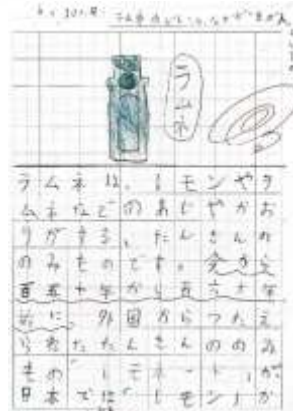 ラムネ
ラムネは、レモンやラ
ムネなどのあじやかお
りがする、たんさんの
のみものです。今から
百五十年から百六十年
前に、外国からつたえ
られたたんさんののみ
もの「レモネード」が、
日本では「レモン」が